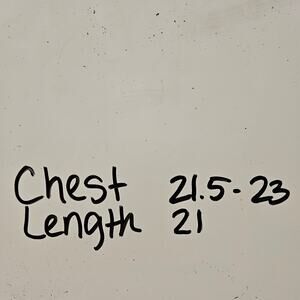 Chest 21.5 - 23
Length 21